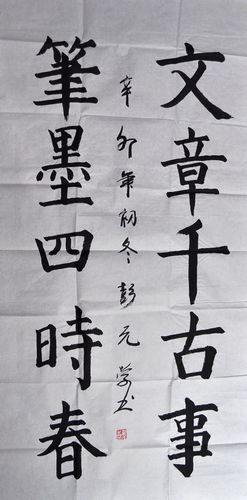 文章千古事
筆墨四時春
辛卯年初冬彭元学书